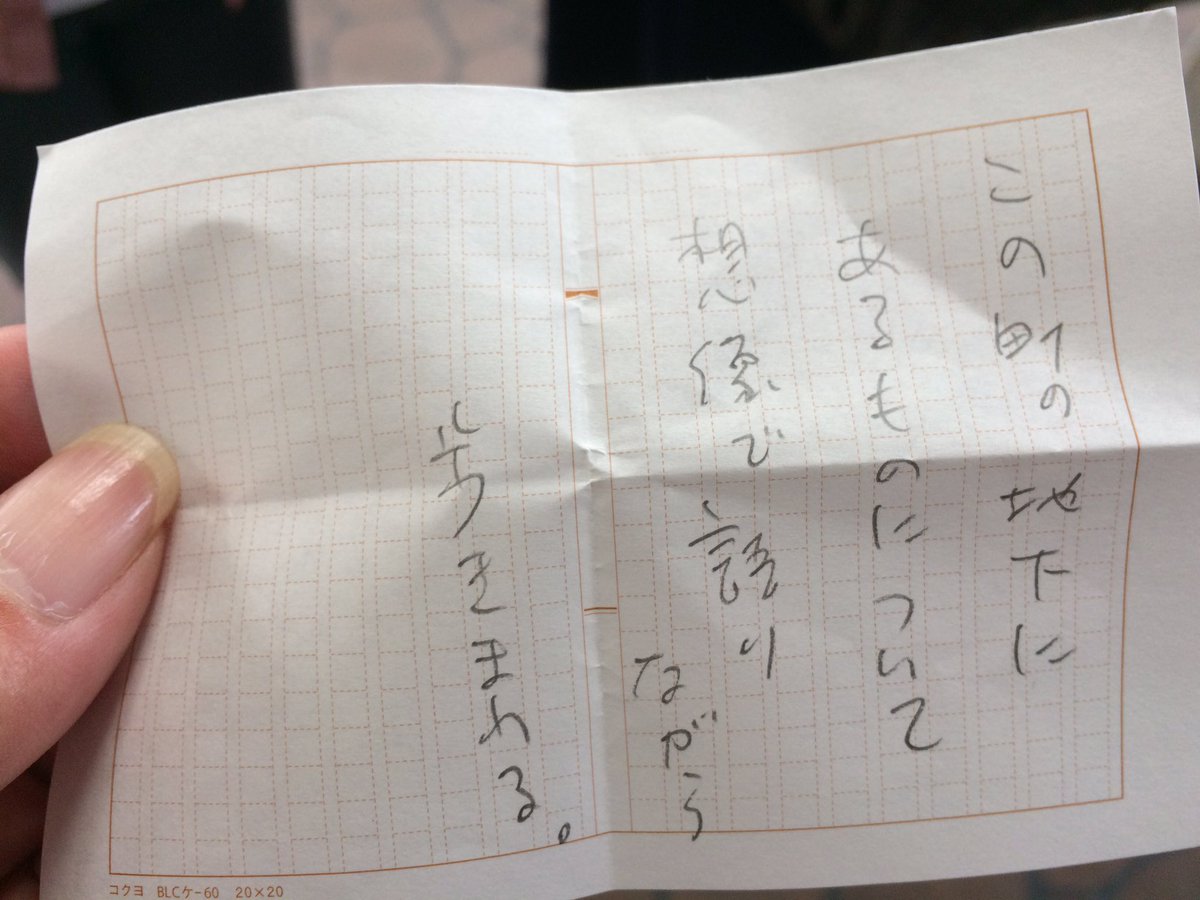 この町の地下に
あるものについて
想像で語り
ながら
歩きまわる。
コクヨ BLCケ-60 20×20